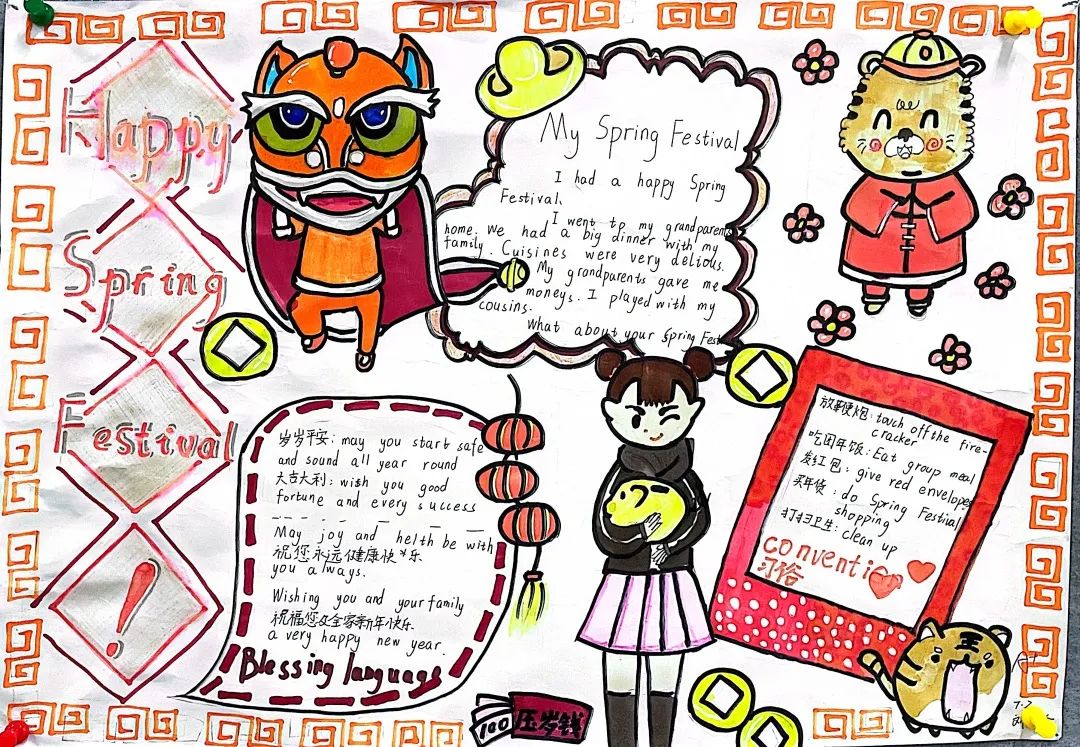 Happy
Spring
Festival
!
My Spring Festival
I had a happy Spring
Festival.
I went to my grandparents
home. We had a big dinner with my
family. Cuisines were very delious.
My grandparents gave me
moneys. I played with my
cousins.
What about your Spring Fest
岁岁平安: may you start safe
and sound all year round
大吉大利: wish you good
fortune and every success
May joy and helth be with
祝您永远健康快乐
you always.
Wishing you and your family
祝福您及全家新年快乐
a very happy new year.
Blessing language
放鞭炮: touch off the fire-
cracker
吃团年饭: Eat group meal
发红包: give red envelopes
买年货: do Spring Festival
shopping
打扫卫生: clean up
convention
习俗
100 压岁钱
王